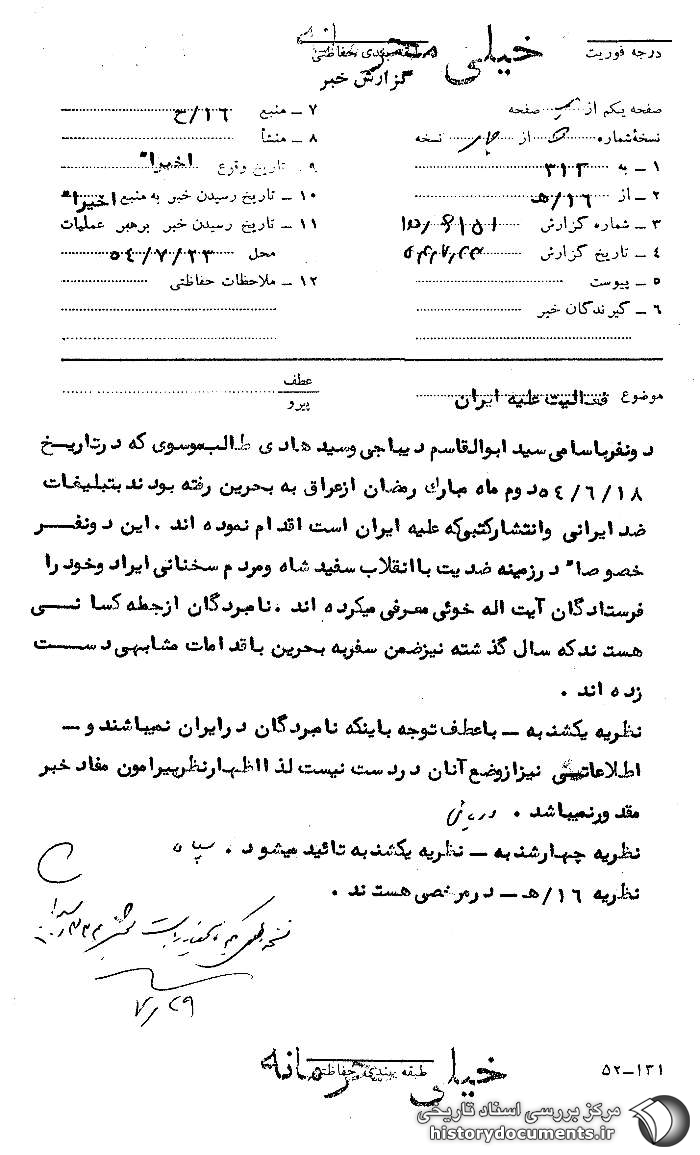 خیلی محرمانه
درجه فوریت
طبقه بندی حفاظتی
گزارش خبر
صفحه یکم از یک صفحه
نسخه شماره از چهار نسخه
۱ ـ به ۳۱۲
۲ ـ از ۱۶/هـ
۳ ـ شماره گزارش
۴ ـ تاریخ گزارش
۵ ـ پیوست
۶ ـ گیرندگان خبر
۷ ـ منبع
۸ ـ منشأ
۹ ـ تاریخ وقوع اخیراً
۱۰ ـ تاریخ رسیدن خبر به منبع اخیراً
۱۱ ـ تاریخ رسیدن خبر برهبر عملیات
محل ۵۴/۷/۲۳
۱۲ ـ ملاحظات حفاظتی
موضوع فعالیت علیه ایران
عطف
پیرو
دونفرباسامی سید ابوالقاسم دیباجی وسید هادی طالب‌موسوی که درتاریخ
۵۴/۶/۱۸دوم ماه مبارک رمضان ازعراق به بحرین رفته بودند بتبلیغات
ضد ایرانی وانتشارکتبی‌که علیه ایران است اقدام نموده اند .این دونفر
خصوصاً درزمینه ضدیت باانقلاب سفید شاه ومردم سخنانی ایراد وخود را
فرستادگان آیت اله خوئی معرفی میکرده اند .نامبردگان ازجمله کسانی
هستند که سال گذشته نیزضمن سفربه بحرین باقدامات مشابهی دست
زده اند .
نظریه یکشنبه ـ باعطف توجه باینکه نامبردگان درایران نمیباشند و ـ
اطلاعاتی نیزازوضع آنان دردست نیست لذااظهارنظرپیرامون مفاد خبر
مقدورنمیباشد .
نظریه چهارشنبه ـ نظریه یکشنبه تائید میشود .
نظریه ۱۶/هـ ـ درمرخصی هستند .
۷/۲۹
خیلی محرمانه
طبقه بندی حفاظتی
۵۲ـ۱۳۱
مرکز بررسی اسناد تاریخی
historydocuments.ir